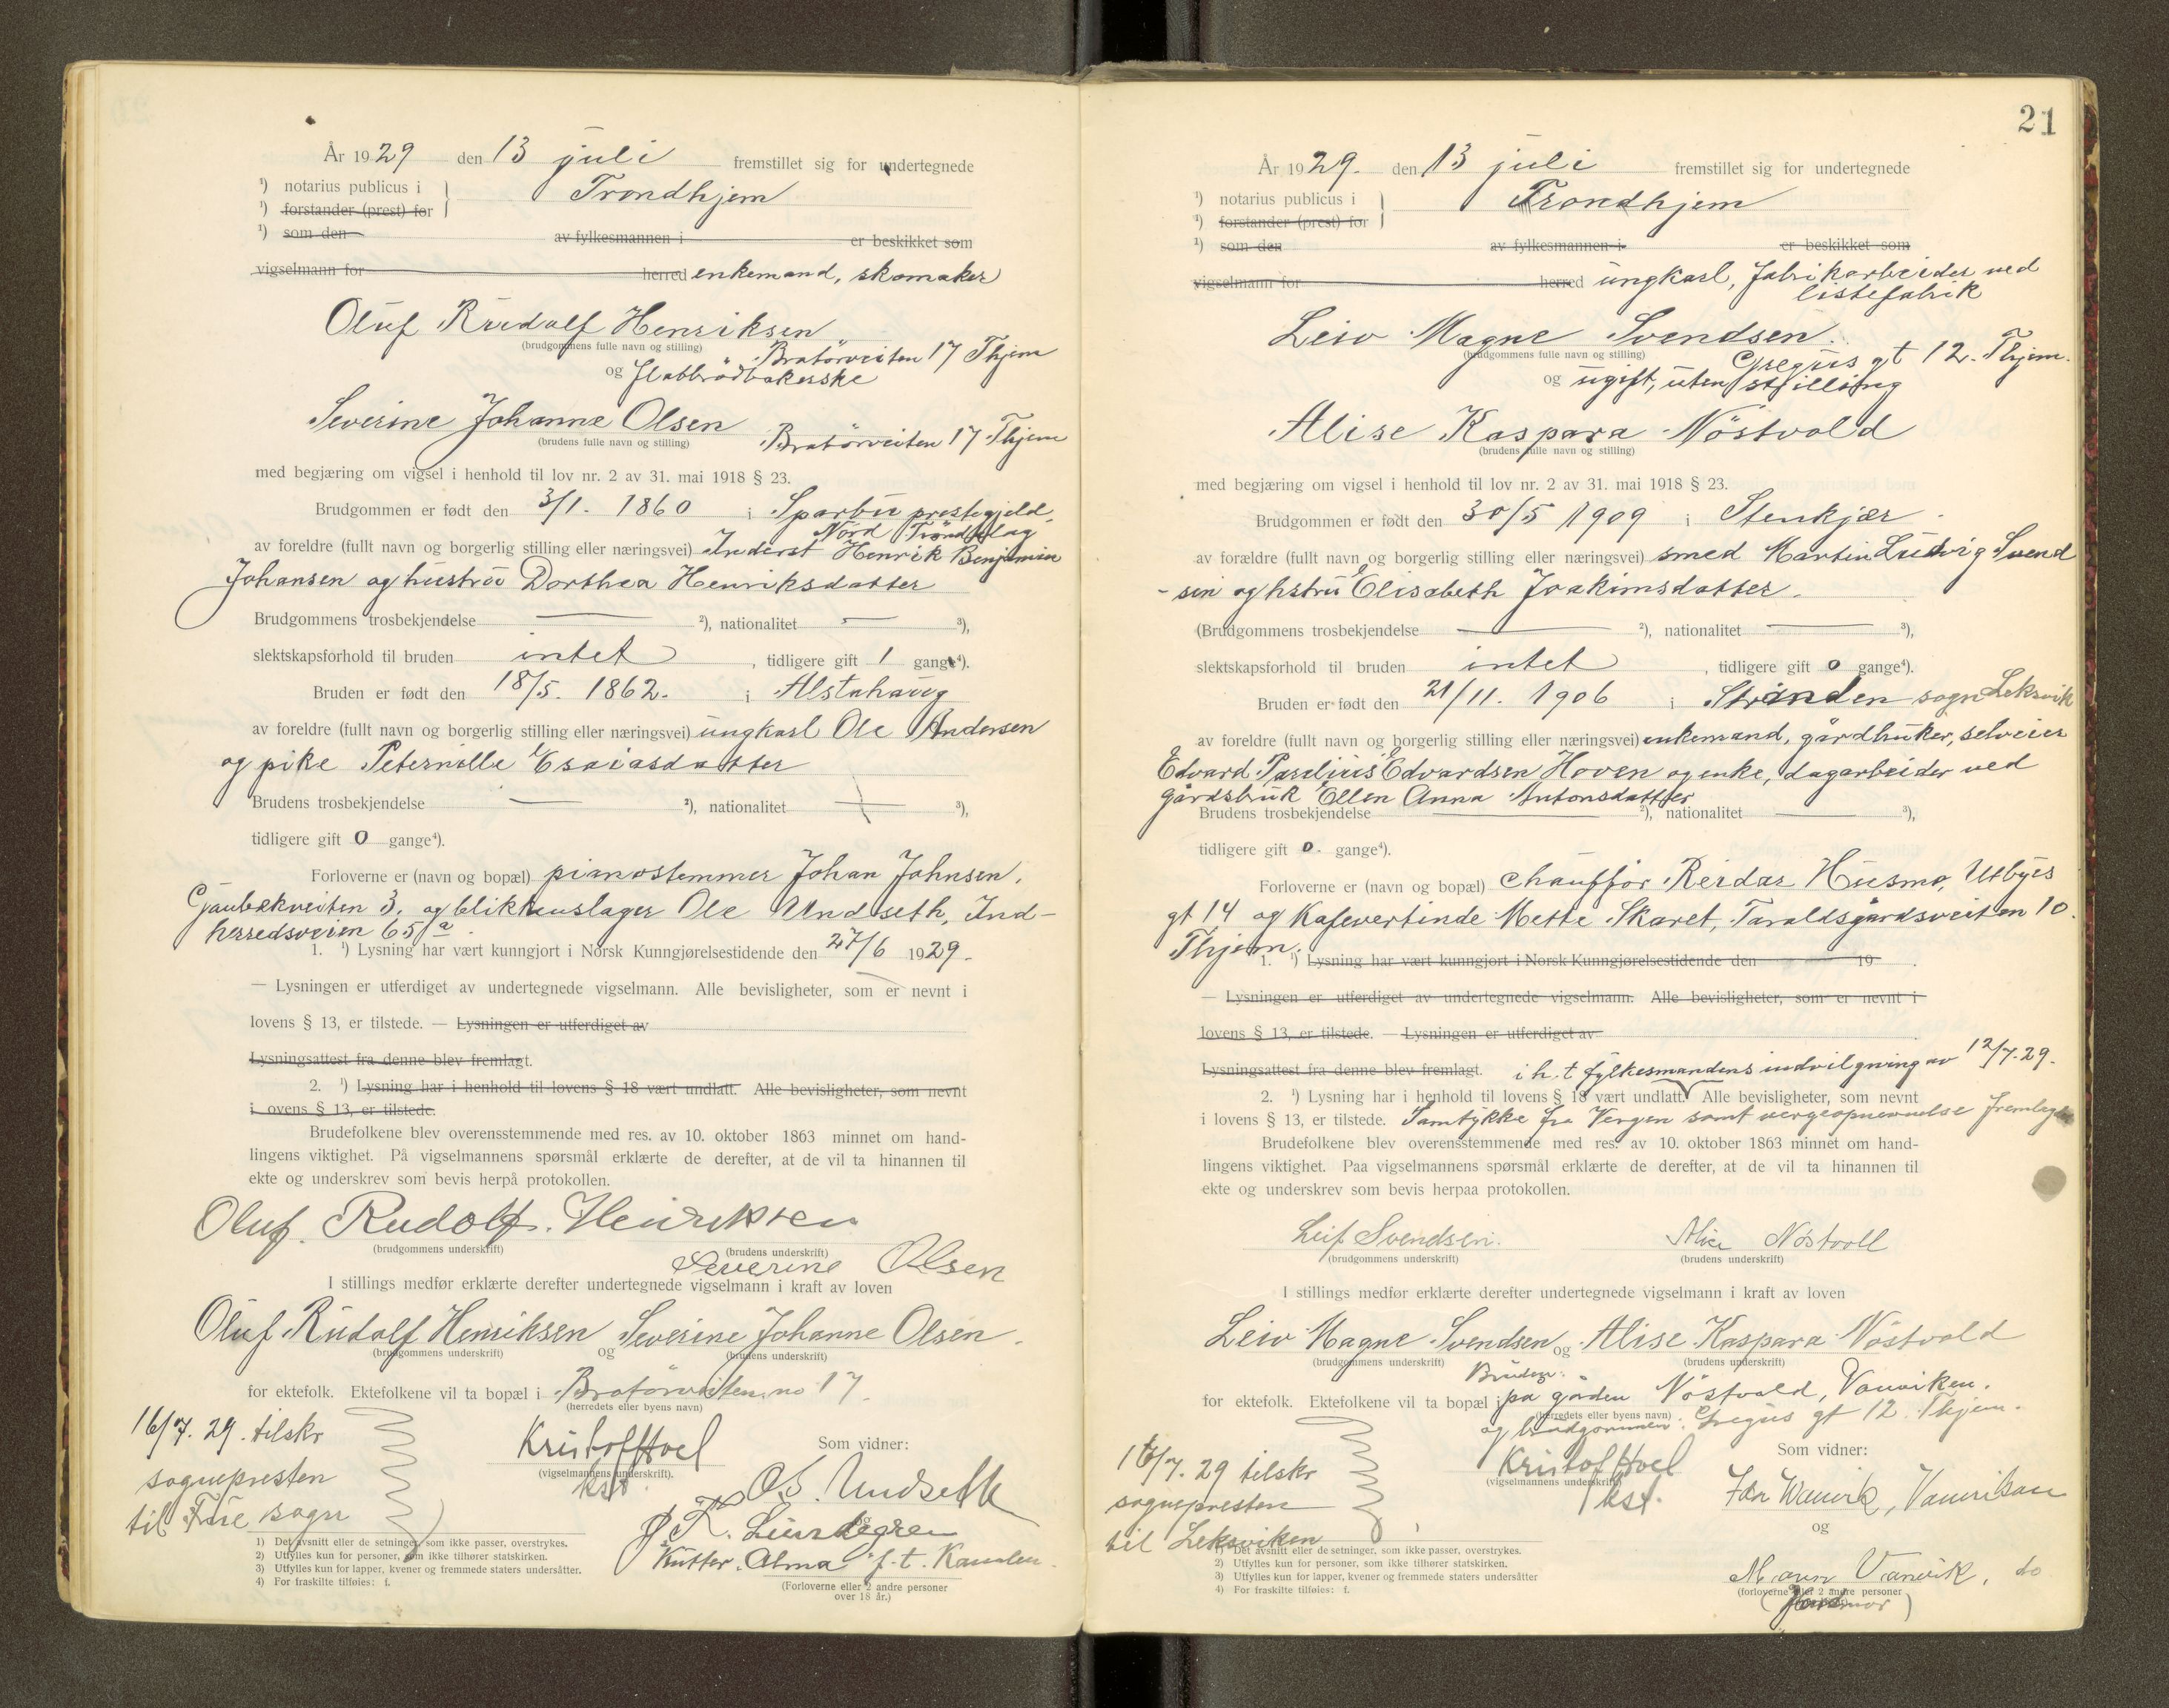 År 1929 den 13 juli fremstillet sig for undertegnede
¹) notarius publicus i } Trondhjem
¹) forstander (prest) for
¹) som den av fylkesmannen i er beskikket som
vigselmann for herred enkemand, skomaker
Oluf Rudolf Henriksen
(brudgommens fulle navn og stilling)
Bratörveiten 17 Thjem
og flatbrödbakerske
Severine Johanne Olsen
(brudens fulle navn og stilling) Bratörveiten 17 Thjem
med begjæring om vigsel i henhold til lov nr. 2 av 31. mai 1918 § 23.
Brudgommen er født den 3/1. 1860 i Sparbu prestegjeld,
Nord Tröndelag
av foreldre (fullt navn og borgerlig stilling eller næringsvei) Inderst Henrik Benjamin
Johansen og hustru Dorthea Henriksdatter
Brudgommens trosbekjendelse — ²), nationalitet — ³),
slektskapsforhold til bruden intet, tidligere gift 1 gang⁴).
Bruden er født den 18/5. 1862. i Alstahaug
av foreldre (fullt navn og borgerlig stilling eller næringsvei) ungkarl Ole Andersen
og pike Peternille Esaiasdatter
Brudens trosbekjendelse — ²), nationalitet — ³),
tidligere gift 0 gange⁴).
Forloverne er (navn og bopæl) pianostemmer Johan Johnsen,
Gaubekveiten 3. og blikkenslager Ole Undseth, Ind-
herredsveien 65/a.
1. ¹) Lysning har vært kunngjort i Norsk Kunngjørelsestidende den 27/6 1929.
— Lysningen er utferdiget av undertegnede vigselmann. Alle bevisligheter, som er nevnt i
lovens § 13, er tilstede. — Lysningen er utferdiget av
Lysningsattest fra denne blev fremlagt.
2. ¹) Lysning har i henhold til lovens § 18 vært undlatt. Alle bevisligheter, som nevnt
i lovens § 13, er tilstede.
Brudefolkene blev overensstemmende med res. av 10. oktober 1863 minnet om hand-
lingens viktighet. På vigselmannens spørsmål erklærte de derefter, at de vil ta hinannen til
ekte og underskrev som bevis herpå protokollen.
Oluf. Rudolf. Henriksen
(brudgommens underskrift) (brudens underskrift)
Severine Olsen
I stillings medfør erklærte derefter undertegnede vigselmann i kraft av loven
Oluf Rudolf Henriksen og Severine Johanne Olsen.
(brudgommens underskrift) (brudens underskrift)
for ektefolk. Ektefolkene vil ta bopæl i Bratörveiten no 17.
(herredets eller byens navn)
16/7. 29. tilskr
sognepresten
til sogn
Kristof Hoel
(vigselmannens underskrift).
kst.
Som vidner:
O. Undseth
og
Lundegren
Kutter. Alma f. t. Kanalen.
(Forloverne eller 2 andre personer
over 18 år.)
1) Det avsnitt eller de setninger, som ikke passer, overstrykes.
2) Utfylles kun for personer, som ikke tilhører statskirken.
3) Utfylles kun for lapper, kvener og fremmede staters undersåtter.
4) For fraskilte tilføies: f.
21
År 1929. den 13 juli fremstillet sig for undertegnede
¹) notarius publicus i } Trondhjem
¹) forstander (prest) for
¹) som den av fylkesmannen i er beskikket som
vigselmann for herred ungkarl, fabrikarbeider ved
listefabrik
Leiv Magne Svendsen.
(brudgommens fulle navn og stilling) Gregus gt 12. Thjem.
og ugift, uten stilling
Alise Kaspara Nöstvold
(brudens fulle navn og stilling)
med begjæring om vigsel i henhold til lov nr. 2 av 31. mai 1918 § 23.
Brudgommen er født den 30/5 1909 i Stenkjær
av forældre (fullt navn og borgerlig stilling eller næringsvei) smed Martin Ludvig Svend
-sen og hstru Elisabeth Joakimsdatter.
(Brudgommens trosbekjendelse — ²), nationalitet — ³),
slektskapsforhold til bruden intet, tidligere gift 0 gange⁴).
Bruden er født den 21/11. 1906 i Stranden sogn Leksvik
av foreldre (fullt navn og borgerlig stilling eller næringsvei) enkemand, gårdbruker, selveier
Edvard Paulius Edvardsen Hoven og enke, dagarbeider ved
gårdsbruk Ellen Anna Antonsdatter
Brudens trosbekjendelse — ²), nationalitet — ³),
tidligere gift 0. gange⁴).
Forloverne er (navn og bopæl) chauffør Reidar Husmo, Utbyes
gt 14 og Kafevertinde Mette Skaret, Taraldsgårdsveiten 10.
Thjem.
1. ¹) Lysning har vært kunngjort i Norsk Kunngjørelsestidende den 19 .
— Lysningen er utferdiget av undertegnede vigselmann. Alle bevisligheter, som er nevnt i
lovens § 13, er tilstede. — Lysningen er utferdiget av
Lysningsattest fra denne blev fremlagt. i h. t fylkesmandens indvilgning av 12/7. 29.
2. ¹) Lysning har i henhold til lovens § 18 vært undlatt. Alle bevisligheter, som nevnt
i lovens § 13, er tilstede. Samtykke fra Vergen samt vergeopnevnelse fremlagt
Brudefolkene blev overensstemmende med res. av 10. oktober 1863 minnet om hand-
lingens viktighet. Paa vigselmannens spørsmål erklærte de derefter, at de vil ta hinannen til
ekte og underskrev som bevis herpaa protokollen.
Leif Svendsen. Alice Nöstvoll
(brudgommens underskrift) (brudens underskrift)
I stillings medfør erklærte derefter undertegnede vigselmann i kraft av loven
Leiv Magne Svendsen og Alise Kaspara Nöstvold
(brudgommens underskrift) (brudens underskrift)
Brudegr.
for ektefolk. Ektefolkene vil ta bopæl i på gården Nöstvold, Vanviken.
(herredets eller byens navn)
og brudgommen: Gregus gt 12. Thjem.
16/7. 29 tilskr
sognepresten
til Leksviken
Kristof Hoel
(vigselmannens underskrift)
kst.
Som vidner:
Wanvik, Vanviken
og
Vanvik, do
(forloverne eller 2 andre personer
(Jordmor)
1) Det avsnitt eller de setninger, som ikke passer, overstrykes.
2) Utfylles kun for personer, som ikke tilhører statskirken.
3) Utfylles kun for lapper, kvener og fremmede staters undersåtter
4) For fraskilte tilføies: f.